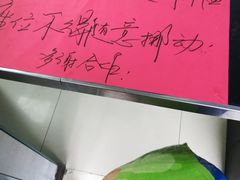 位不得随意挪动.
多谢合作.